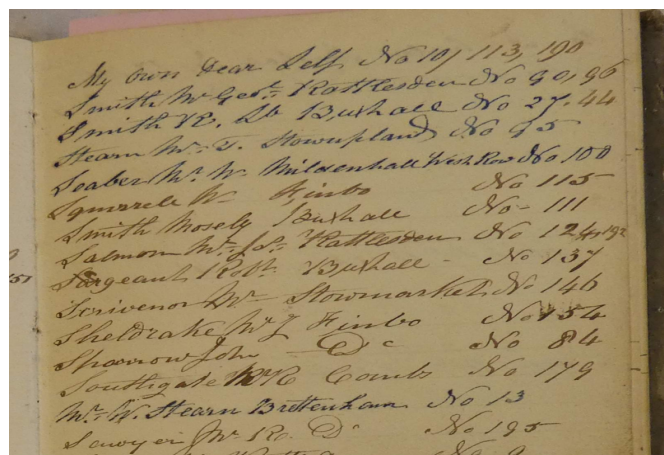 My own dear Self No 10, 113, 190
Smith Mr Geo. Rattlesden No 90, 96
Smith R. Buxhall No 27. 44
Stearn Mr. T. Stowupland No 95
Seaber Mr. W. Mildenhall West Row No 100
Squirrell W Finbo No 115
Smith Mosely Buxhall No- 111
Salmon Mr Rattlesden No 124, 192
Sargeant Robt. Buxhall - No 137
Scrivenor Mr Stowmarket No 146
Sheldrake Mr J Finbo No 154
Sparrow John Do No 84
Southgate Mr R Combs No 179
Mr. W. Stearn Brettenham No 13
Sawyer Do No 195
No
151